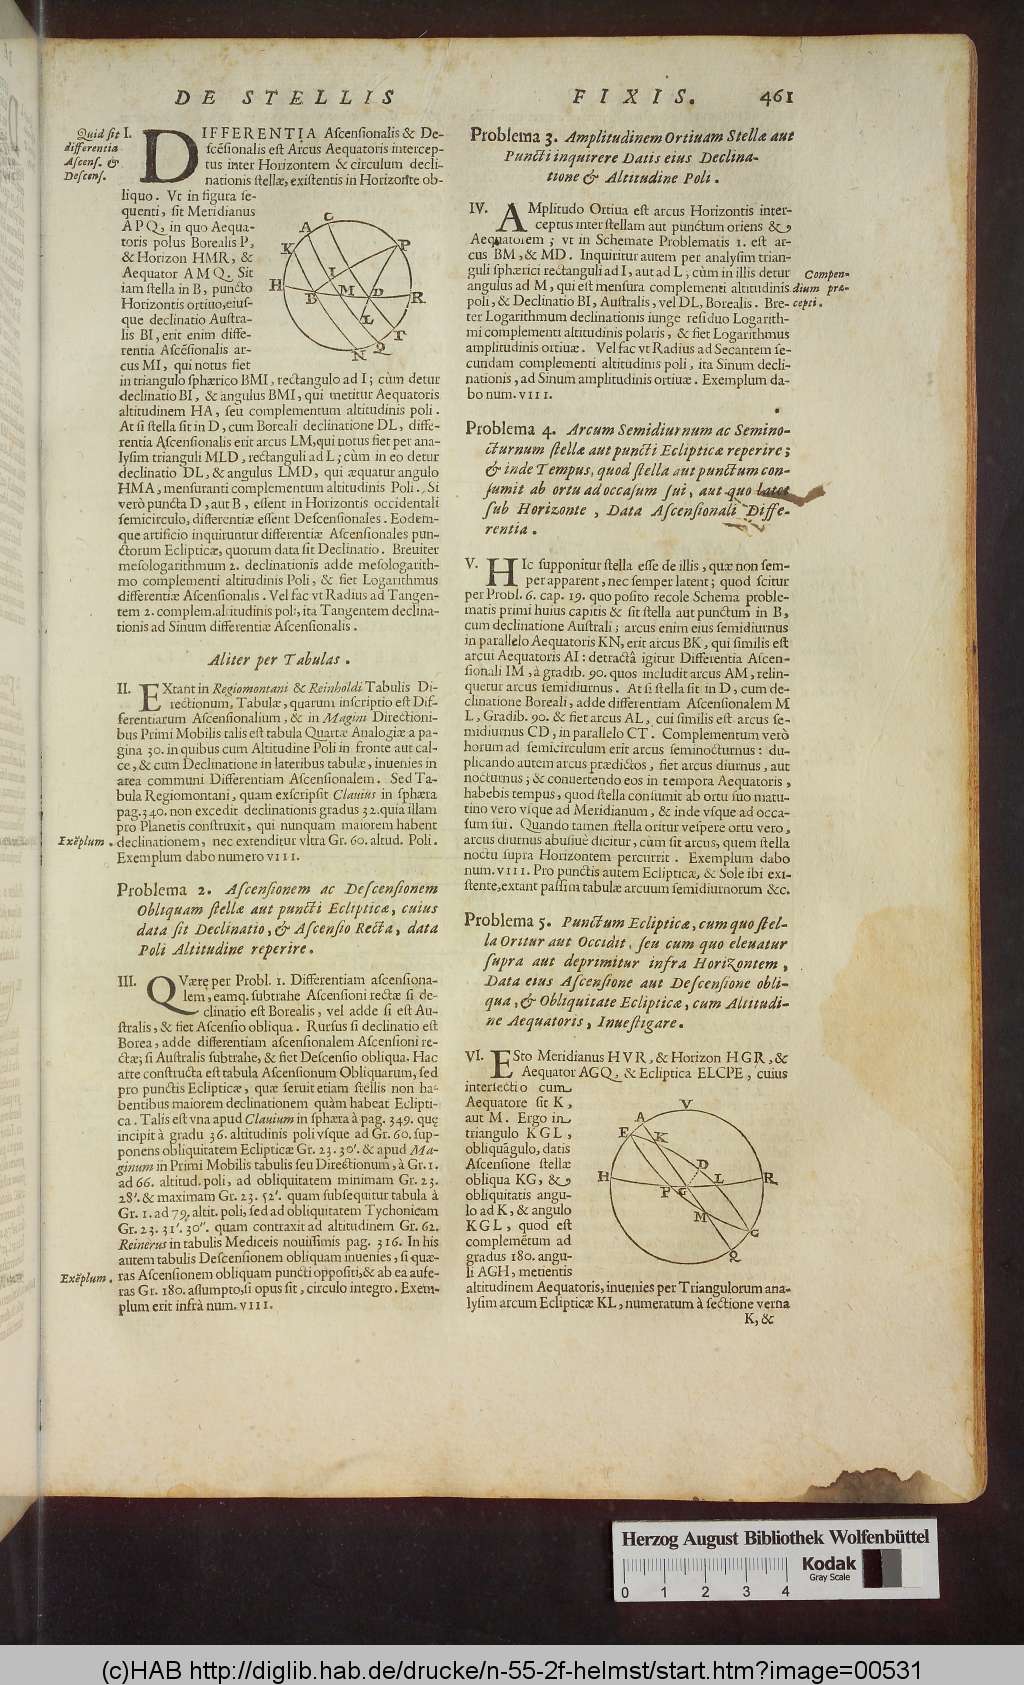 DE STELLIS
FIXIS. 461
Quid ſit
differentia
Aſcenſ. &
Deſcenſ.
I. DIFFERENTIA Aſcenſionalis & De-
ſcẽſionalis eſt Arcus Aequatoris intercep-
tus inter Horizontem & circulum decli-
nationis ſtellæ, exiſtentis in Horizonte ob-
liquo. Vt in figura ſe-
quenti, ſit Meridianus
APQ, in quo Aequa-
toris polus Borealis P,
& Horizon HMR, &
Aequator AMQ. Sit
iam ſtella in B, puncto
Horizontis ortiuo, eiuſ-
que declinatio Auſtra-
lis BI, erit enim diffe-
rentia Aſcẽſionalis ar-
cus MI, qui notus fiet
in triangulo ſphærico BMI, rectangulo ad I; cùm detur
declinatio BI, & angulus BMI, qui metitur Aequatoris
altitudinem HA, ſeu complementum altitudinis poli.
At ſi ſtella ſit in D, cum Boreali declinatione DL, diffe-
rentia Aſcenſionalis erit arcus LM, qui notus fiet per ana-
lyſim trianguli MLD, rectanguli ad L; cùm in eo detur
declinatio DL, & angulus LMD, qui æquatur angulo
HMA, menſuranti complementum altitudinis Poli. Si
verò puncta D, aut B, eſſent in Horizontis occidentali
ſemicirculo, differentiæ eſſent Deſcenſionales. Eodem-
que artificio inquiruntur differentiæ Aſcenſionales pun-
ctorum Eclipticæ, quorum data ſit Declinatio. Breuiter
meſologarithmum 2. declinationis adde meſologarith-
mo complementi altitudinis Poli, & fiet Logarithmus
differentiæ Aſcenſionalis. Vel fac vt Radius ad Tangen-
tem 2. complem. altitudinis poli, ita Tangentem declina-
tionis ad Sinum differentiæ Aſcenſionalis.
C
A
K
P
H
I
B
M
D
R
L
T
N
Q
Aliter per Tabulas.
II. EXtant in Regiomontani & Reinholdi Tabulis Di-
rectionum, Tabulæ, quarum inſcriptio eſt Dif-
ferentiarum Aſcenſionalium, & in Magini Directioni-
bus Primi Mobilis talis eſt tabula Quartæ Analogiæ a pa-
gina 30. in quibus cum Altitudine Poli in fronte aut cal-
ce, & cum Declinatione in lateribus tabulæ, inuenies in
area communi Differentiam Aſcenſionalem. Sed Ta-
bula Regiomontani, quam exſcripſit Clauius in ſphæra
pag. 340. non excedit declinationis gradus 32. quia illam
pro Planetis conſtruxit, qui nunquam maiorem habent
Exẽplum. declinationem, nec extenditur vltra Gr. 60. altud. Poli.
Exemplum dabo numero VIII.
Problema 2. Aſcenſionem ac Deſcenſionem
Obliquam ſtellæ aut puncti Eclipticæ, cuius
data ſit Declinatio, & Aſcenſio Recta, data
Poli Altitudine reperire.
III. QVærę per Probl. 1. Differentiam aſcenſiona-
lem, eamq. ſubtrahe Aſcenſioni rectæ ſi de-
clinatio eſt Borealis, vel adde ſi eſt Au-
ſtralis, & fiet Aſcenſio obliqua. Rurſus ſi declinatio eſt
Borea, adde differentiam aſcenſionalem Aſcenſioni re-
ctæ; ſi Auſtralis ſubtrahe, & fiet Deſcenſio obliqua. Hac
arte conſtructa eſt tabula Aſcenſionum Obliquarum, ſed
pro punctis Eclipticæ, quæ ſeruit etiam ſtellis non ha-
bentibus maiorem declinationem quàm habeat Eclipti-
ca. Talis eſt vna apud Clauium in ſphæra à pag. 349. quę
incipit à gradu 36. altitudinis poli vſque ad Gr. 60. ſup-
ponens obliquitatem Eclipticæ Gr. 23. 30'. & apud Ma-
ginum in Primi Mobilis tabulis ſeu Directionum, à Gr. 1.
ad 66. altitud. poli, ad obliquitatem minimam Gr. 23.
28'. & maximam Gr. 23. 52'. quam ſubſequitur tabula à
Gr. 1. ad 79. altit. poli, ſed ad obliquitatem Tychonicam
Gr. 23. 31'. 30''. quam contraxit ad altitudinem Gr. 62.
Reinerus in tabulis Mediceis nouiſſimis pag. 316. In his
autem tabulis Deſcenſionem obliquam inuenies, ſi quæ-
Exẽplum. ras Aſcenſionem obliquam puncti oppoſiti, & ab ea aufe-
ras Gr. 180. aſſumpto, ſi opus ſit, circulo integro. Exem-
plum erit infrà num. VIII.
Problema 3. Amplitudinem Ortiuam Stellæ aut
Puncti inquirere Datis eius Declina-
tione & Altitudine Poli.
IV. AMplitudo Ortiua eſt arcus Horizontis inter-
ceptus inter ſtellam aut punctum oriens &
Aequatorem; vt in Schemate Problematis 1. eſt ar-
cus BM, & MD. Inquiritur autem per analyſim trian-
guli ſphærici rectanguli ad I, aut ad L; cùm in illis detur
angulus ad M, qui eſt menſura complementi altitudinis
poli, & Declinatio BI, Auſtralis, vel DL, Borealis. Bre-
ter Logarithmum declinationis iunge reſiduo Logarith-
mi complementi altitudinis polaris, & fiet Logarithmus
amplitudinis ortiuæ. Vel fac vt Radius ad Secantem ſe-
cundam complementi altitudinis poli, ita Sinum decli-
nationis, ad Sinum amplitudinis ortiuæ. Exemplum da-
bo num. VIII.
Compen-
dium præ-
cepti.
Problema 4. Arcum Semidiurnum ac Semino-
cturnum ſtellæ aut puncti Eclipticæ reperire;
& inde Tempus, quod ſtella aut punctum con-
ſumit ab ortu ad occaſum ſui, aut quo latet
ſub Horizonte, Data Aſcenſionali Diffe-
rentia.
V. HIc ſupponitur ſtella eſſe de illis, quæ non ſem-
per apparent, nec ſemper latent; quod ſcitur
per Probl. 6. cap. 19. quo poſito recole Schema proble-
matis primi huius capitis & ſit ſtella aut punctum in B,
cum declinatione Auſtrali; arcus enim eius ſemidiurnus
in parallelo Aequatoris KN, erit arcus BK, qui ſimilis eſt
arcui Aequatoris AI: detractâ igitur Differentia Aſcen-
ſionali IM, à gradib. 90. quos includit arcus AM, relin-
quetur arcus ſemidiurnus. At ſi ſtella ſit in D, cum de-
clinatione Boreali, adde differentiam Aſcenſionalem M
L, Gradib. 90. & fiet arcus AL, cui ſimilis eſt arcus ſe-
midiurnus CD, in parallelo CT. Complementum verò
horum ad ſemicirculum erit arcus ſeminocturnus: du-
plicando autem arcus prædictos, fiet arcus diurnus, aut
nocturnus; & conuertendo eos in tempora Aequatoris,
habebis tempus, quod ſtella conſumit ab ortu ſuo matu-
tino vero vſque ad Meridianum, & inde vſque ad occa-
ſum ſui. Quando tamen ſtella oritur veſpere ortu vero,
arcus diurnus abuſiuè dicitur, cùm ſit arcus, quem ſtella
noctu ſupra Horizontem percurrit. Exemplum dabo
num. VIII. Pro punctis autem Eclipticæ, & Sole ibi exi-
ſtente, extant paſſim tabulæ arcuum ſemidiurnorum &c.
Problema 5. Punctum Eclipticæ, cum quo ſtel-
la Oritur aut Occidit, ſeu cum quo eleuatur
ſupra aut deprimitur infra Horizontem,
Data eius Aſcenſione aut Deſcenſione obli-
qua, & Obliquitate Eclipticæ, cum Altitudi-
ne Aequatoris, Inueſtigare.
VI. ESto Meridianus HVR, & Horizon HGR, &
Aequator AGQ, & Ecliptica ELCPE, cuius
interſectio cum
Aequatore ſit K,
aut M. Ergo in
triangulo KGL,
obliquãgulo, datis
Aſcenſione ſtellæ
obliqua KG, &
obliquitatis angu-
lo ad K, & angulo
KGL, quod eſt
complemẽtum ad
gradus 180. angu-
li AGH, metientis
altitudinem Aequatoris, inuenies per Triangulorum ana-
lyſim arcum Eclipticæ KL, numeratum à ſectione verna
K, &
V
A
E
K
D
H
P
G
L
R
M
C
Q
Herzog August Bibliothek Wolfenbüttel
Kodak
Gray Scale
0 1 2 3 4
(c)HAB http://diglib.hab.de/drucke/n-55-2f-helmst/start.htm?image=00531